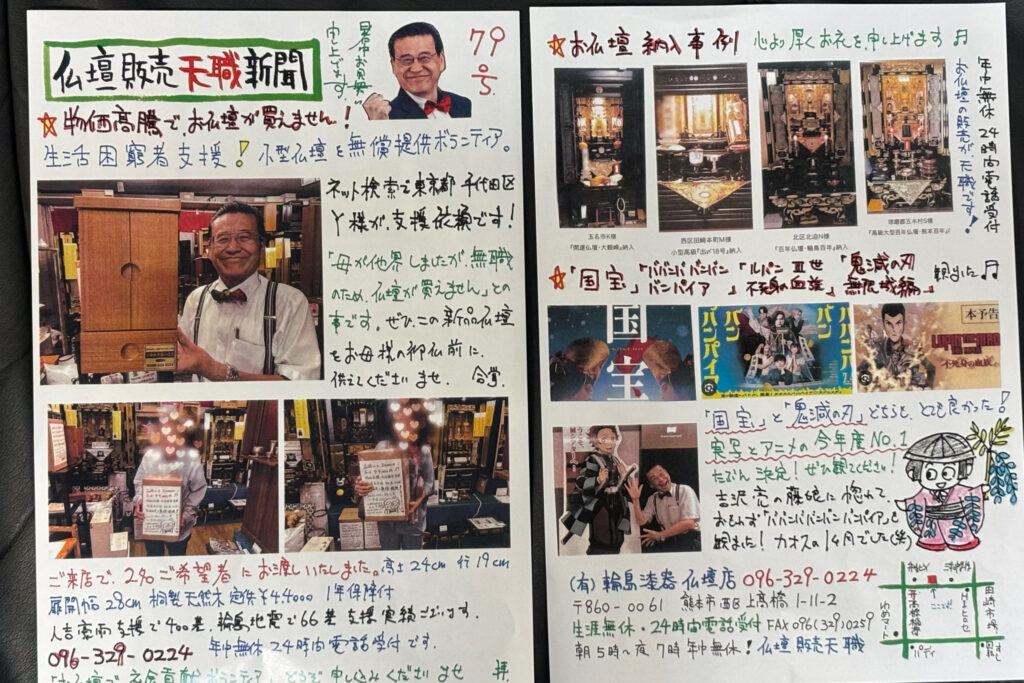 仏壇販売天職新聞
暑中お見舞い
申し上げます
79号
☆物価高騰でお仏壇が買えません!
生活困窮者支援!小型仏壇を無償提供ボランティア。
ネット検索で東京都千代田区
Y様が、支援依頼です!
「母が他界しましたが、無職
のため、仏壇が買えません」との
事です。ぜひ、この新品仏壇
をお母様の御仏前に、
供えてくださいませ。合掌.
ご来店で、2名ご希望者にお渡しいたしました。高さ24cm 行19cm
扉開幅28cm 桐製天然木定価¥44000 1年保障付
人吉豪雨支援で400基、輪島地震で66基支援実績ございます
096-329-0224 年中無休24時間電話受付です.
「お仏壇で社会貢献ボランティア」どうぞ申し込みくださいませ 拝.
☆お仏壇納入事例 心より厚くお礼を申し上げます♬
年中無休 24時間電話受付
お仏壇の販売が天職です!
玉名市K様
『開運仏壇・大観峰』納入
西区田崎本町M様
小型高級『出〆18号』納入
北区北迫N様
『百年仏壇・輪島百年』納入
球磨郡五木村S様
『高級大型百年仏壇・熊本百年』
☆「国宝」「ババンババンバンバンパイア」「ルパンⅢ世 不死身の血族」「鬼滅の刃 無限城編」観ました♬
国宝
バンパイア
バン
本予告
LUPIN THE IIIRD
不死身の血族
「国宝」と「鬼滅の刃」どちらも、とても良かった!
実写とアニメの今年度NO.1
たぶん決定!ぜひ観てください!
吉沢亮の藤娘に惚れて、
おもわず"ババンババンバンバンパイア"も
観ました!カオスの1ヶ月でした(笑)
(有)輪島漆器仏壇店 096-329-0224
〒860-0061 熊本市西区上高橋1-11-2
生涯無休・24時間電話受付 FAX096(329)0259
朝5時〜夜7時年中無休!仏壇販売天職
ゆめマート
田崎市場